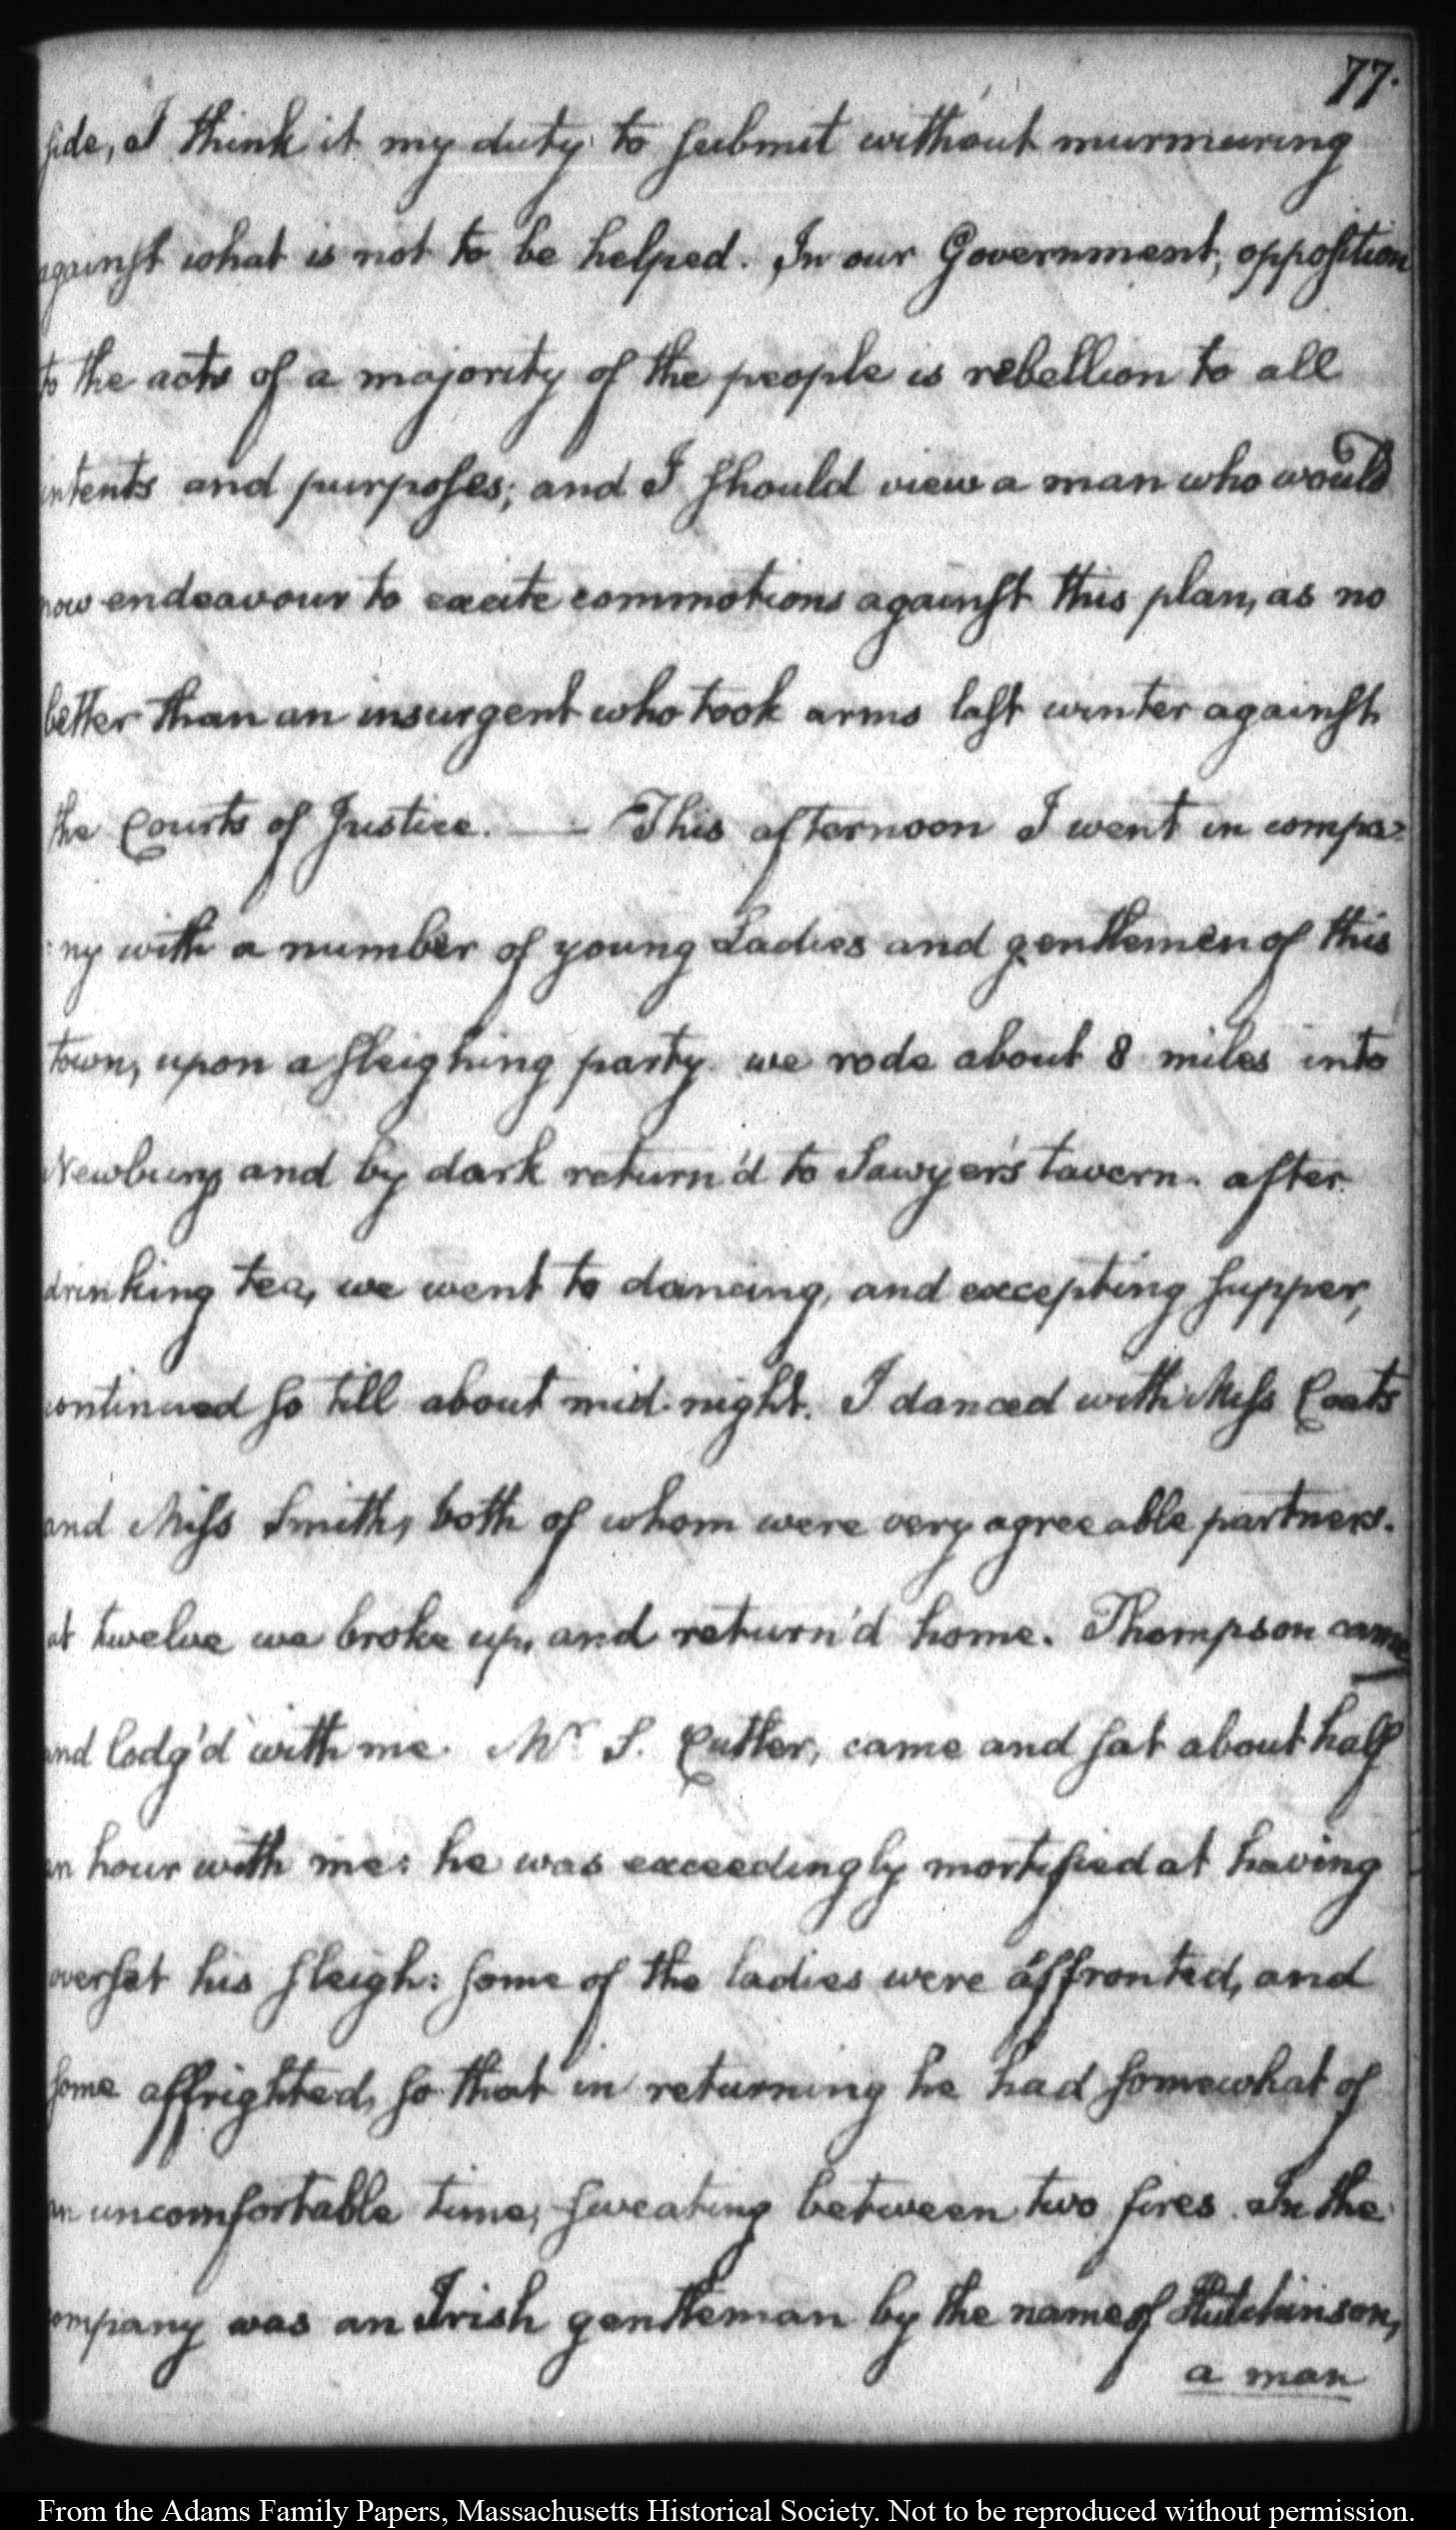 77.
side, I think it my duty to submit without murmuring
against what is not to be helped. In our Government, opposition
to the acts of a majority of the people is rebellion to all
intents and purposes; and I should view a man who would
now endeavour to excite commotions against this plan, as no
better than an insurgent who took arms last winter against
the Courts of Justice. — This afternoon I went in compa=
:ny with a number of young Ladies and gentlemen of this
town, upon a sleighing party. we rode about 8 miles into
Newbury, and by dark return'd to Sawyer's tavern. after
drinking tea, we went to dancing, and excepting supper,
continued so till about mid-night. I danced with Miss Coats
and Miss Smith, both of whom were very agreeable partners.
at twelve we broke up, and return'd home. Thompson came
and lodg'd with me. Mr S. Cutler, came and sat about half
an hour with me: he was exceedingly mortified at having
overset his sleigh: some of the ladies were affronted, and
some affrighted, so that in returning he had somewhat of
an uncomfortable time, sweating between two fires. In the
company was an Irish gentleman by the name of Hutchinson,
a man
From the Adams Family Papers, Massachusetts Historical Society. Not to be reproduced without permission.